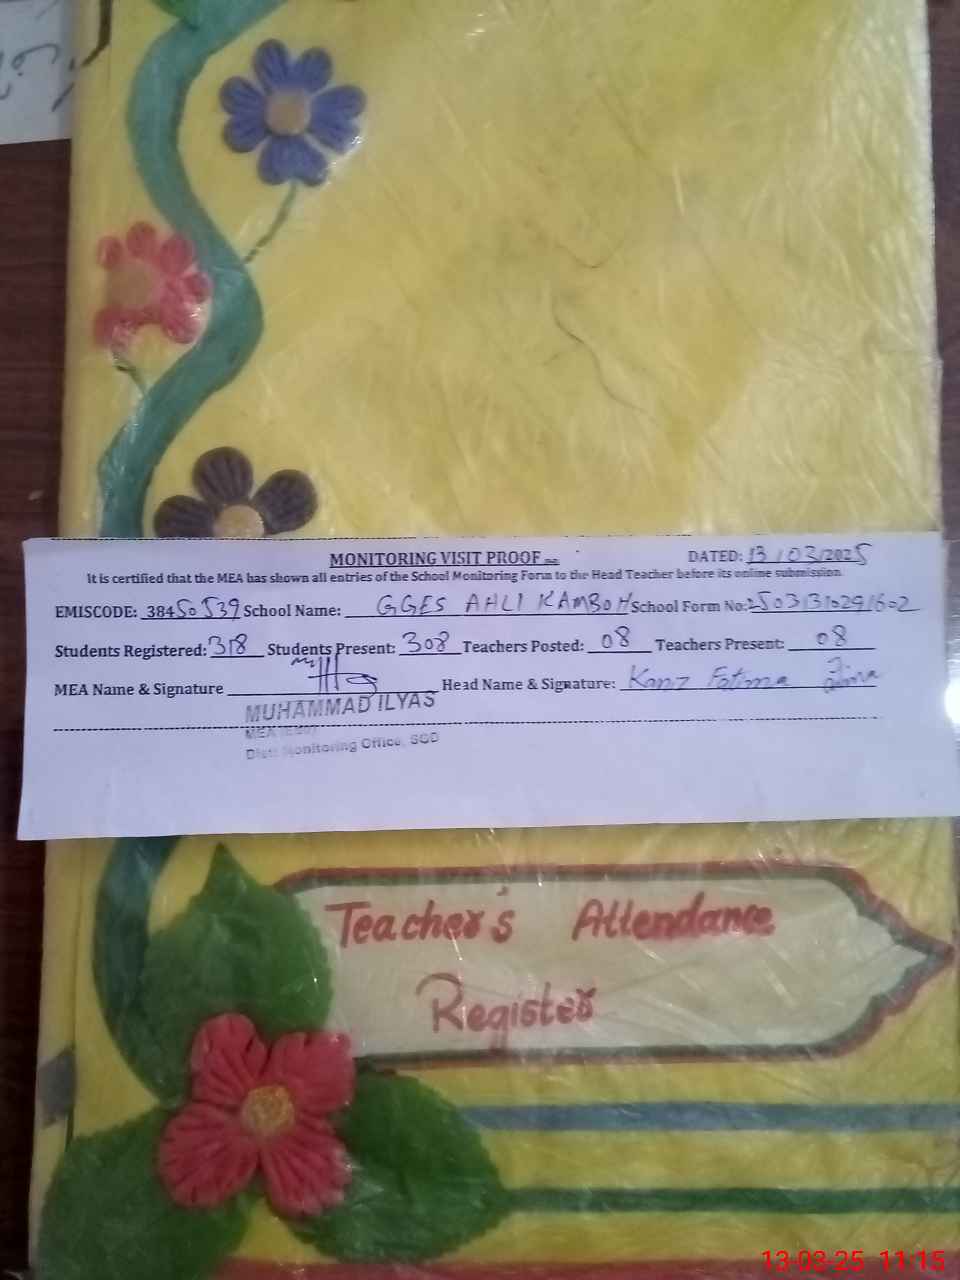 MONITORING VISIT PROOF
DATED: 13/03/2025
It is certified that the MEA has shown all entries of the School Monitoring Form to the Head Teacher before its online submission.
EMISCODE: 38450539 School Name: GGES AHLI KAMBOH School Form No:
Students Registered: 318 Students Present: 308 Teachers Posted: 08 Teachers Present: 08
MEA Name & Signature Head Name & Signature: Kanz Fatima
MUHAMMAD ILYAS
MEA
Distt: Monitoring Office, SGD
Teacher's Attendance
Register
13-03-25 11:15